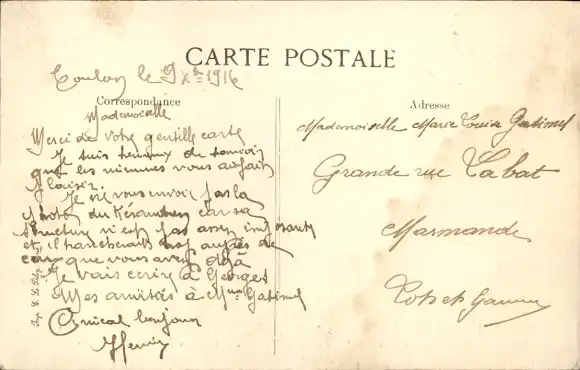 CARTE POSTALE
Toulon le 9 Xbre 1916
Correspondance
Mademoiselle
Merci de votre gentille carte
Je suis heureux de savoir
que les miennes vous au fait
plaisir.
Je ne vous envoie pas la
photo du car sa
structure n'est pas assez imposante
et il trop auprès de
ceux que vous avez déjà
Je vais écrire à Georges
Mes amitiés à Mme Gatimel
Amical bonjour
Henri
Adresse
Mademoiselle Marie Louise Gatimel
Grande rue Labat
Marmande
Lot et Garonne
Imp. E. Le Deley